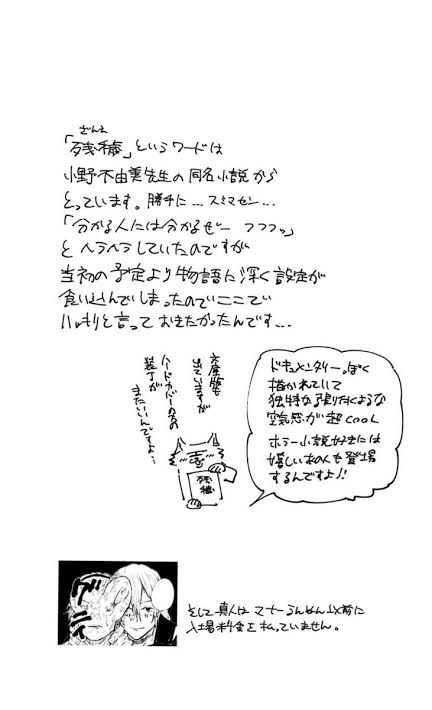 ざんえ
「残穢」というワードは
小野不由美先生の同名小説から
とっています。勝手に…スミマセン…
「分かる人には分かるぜー フフフッ」
とヘラヘラしていたのですが
当初の予定より物語に深く設定が
食い込んでしまったのでここで
ハッキリと言っておきたかったんです…
文庫版も
出ていますが
ハードカバーの方の
装丁が
またいいんですよ…
残穢
ドキュメンタリーっぽく
描かれていて
独特な張りたくような
空気感が超COOL
ホラー小説好きには
嬉しいあの人も登場
するんですよ!!
グニィ
そして真人はマナーうんぬん以前に
入場料金を払っていません。